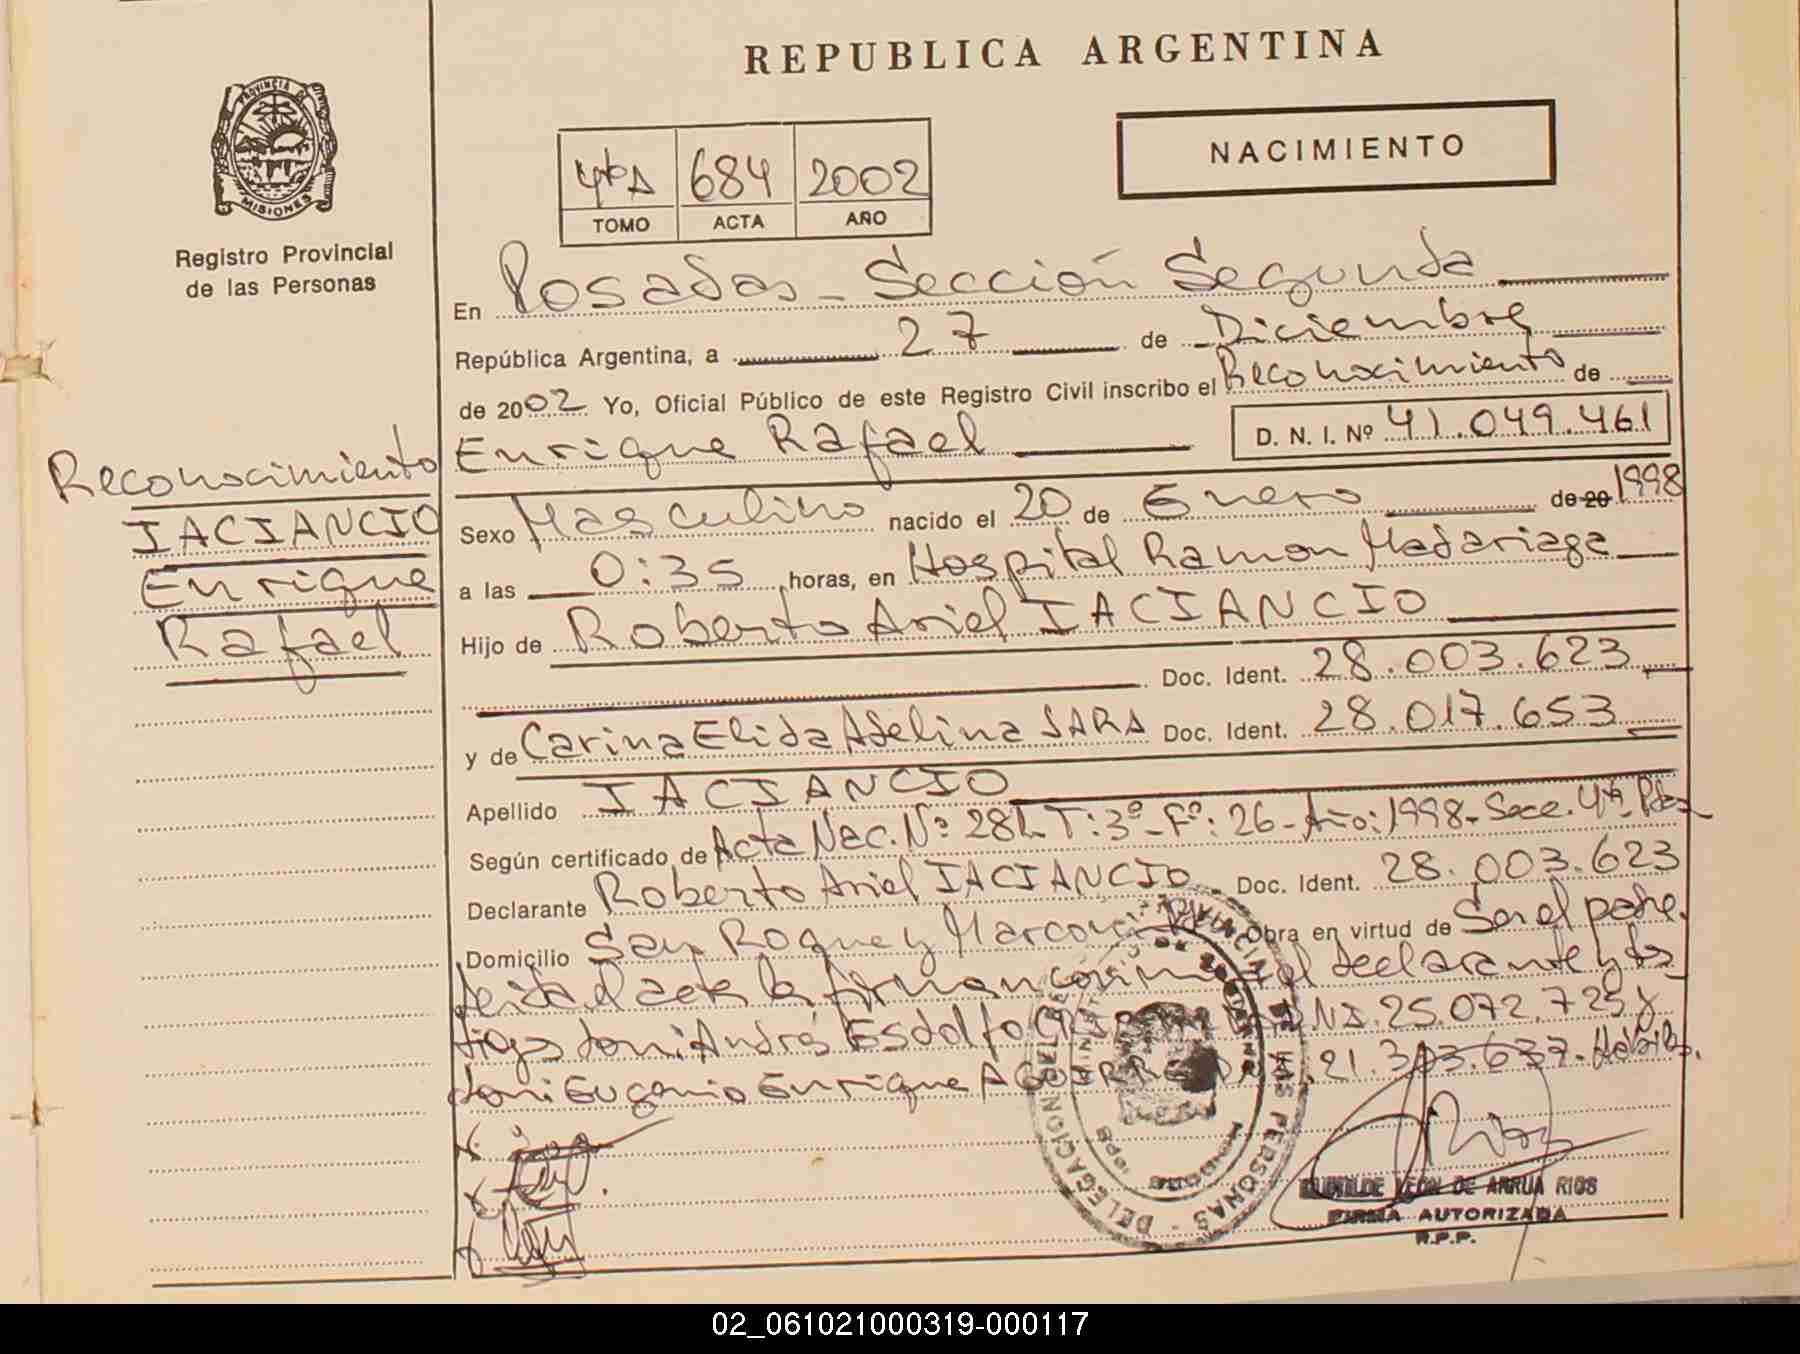 REPUBLICA ARGENTINA
PROVINCIA DE
MISIONES
Registro Provincial
de las Personas
4to 684 2002
TOMO ACTA AÑO
NACIMIENTO
En Posadas - Sección Segunda
República Argentina, a 27 de Diciembre
de 2002 Yo, Oficial Público de este Registro Civil inscribo el Reconocimiento de
Enrique Rafael D. N. I. Nº 41.049.461
Reconocimiento
IACIANCIO
Enrique
Rafael
Sexo Masculino nacido el 20 de Enero de 20 1998
a las 0:35 horas, en Hospital Ramon Madariaga
Hijo de Roberto Ariel IACIANCIO
Doc. Ident. 28.003.623
y de Carina Elida Adelina SARA Doc. Ident. 28.017.653
Apellido IACIANCIO
Según certificado de Acta Nac. Nº 281- T: 3º- Fº: 26- Año: 1998- Secc. 4ta- Pdas
Declarante Roberto Ariel IACIANCIO Doc. Ident. 28.003.623
Domicilio San Roque y Marconi Obra en virtud de Ser el padre.
leida el acta la firman conmigo el declarante y tes
tigos don: Andrés Esdolfo D.N.I. 25.072.725 y
don: Eugenio Enrique AGUIRRE D.N.I. 21.303.637- Hábiles.
DELEGACION DEL REGISTRO PROVINCIAL DE LAS PERSONAS
POSADAS
MISIONES
LEON DE ARRUA RIOS
FIRMA AUTORIZADA
R.P.P.
02_061021000319-000117